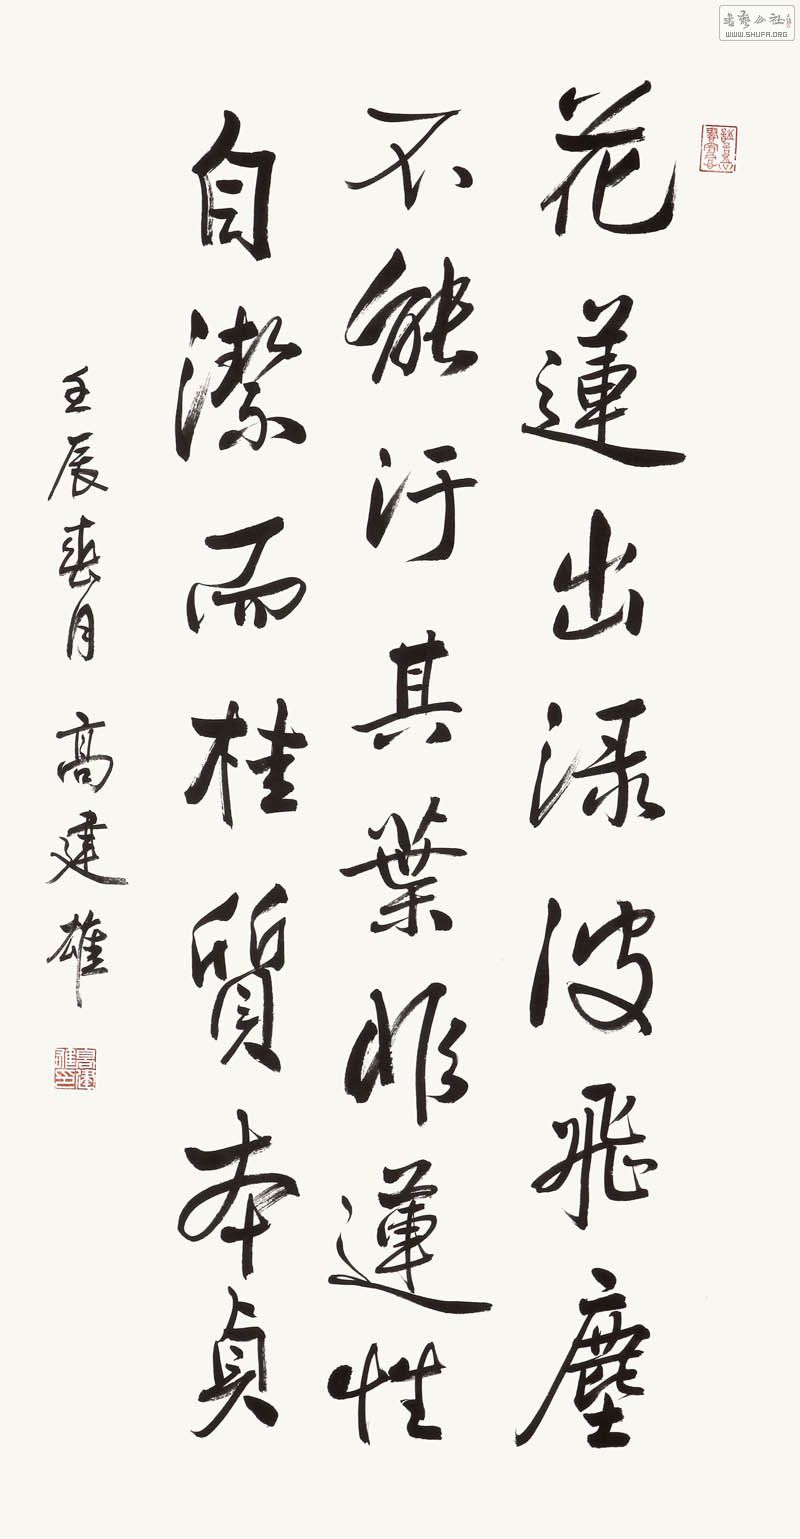 花蓮出渌波飛塵
不能汙其葉非蓮性
自潔而桂質本貞
壬辰春月 高建雄
書藝公社
WWW.SHUFA.ORG